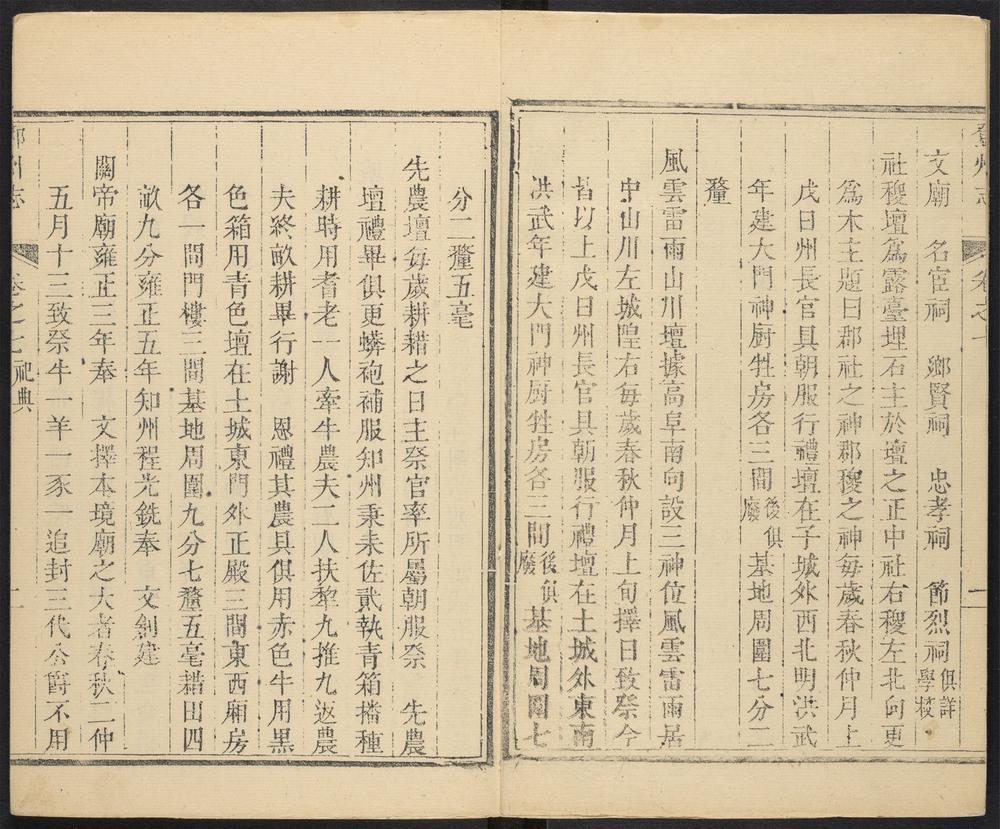 州志
卷之七
一
文廟 名宦祠 鄉賢祠 忠孝祠 節烈祠俱詳學校
社稷壇爲露臺埋石主於壇之正中社右稷左北向更
爲木主題曰郡社之神郡稷之神每歲春秋仲月上
戊日州長官具朝服行禮壇在子城外西北明洪武
年建大門神厨牲房各三間後俱廢基地周圍七分二
釐
風雲雷雨山川壇據高阜南向設三神位風雲雷雨居
中山川左城隍右每歲春秋仲月上旬擇日致祭今
皆以上戊日州長官具朝服行禮壇在土城外東南
洪武年建大門神厨牲房各三間後俱廢基地周圍七
分二釐五毫
先農壇每歲耕耤之日主祭官率所屬朝服祭 先農
壇禮畢俱更蟒袍補服知州秉耒佐貳執青箱播種
耕時用耆老一人牽牛農夫二人扶犂九推九返農
夫終畝耕畢行謝 恩禮其農具俱用赤色牛用黑
色箱用青色壇在土城東門外正殿三間東西廂房
各一間門樓三間基地周圍九分七釐五毫耤田四
畝九分雍正五年知州程光銑奉 文剏建
關帝廟雍正三年奉 文擇本境廟之大者春秋二仲
五月十三致祭牛一羊一豕一追封三代公爵不用
州志
卷之七 祀典
二